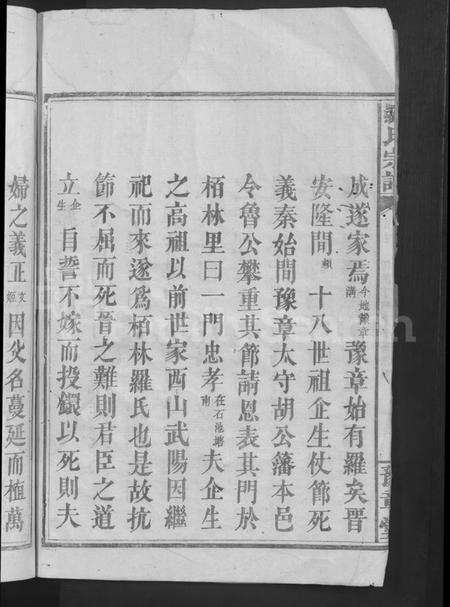 羅氏宗譜
成遂家焉豫章始有羅矣晉
安隆間 十八世祖企生仗節死
義秦始間豫章太守胡公藩本邑
令魯公攀重其節請恩表其門於
栢林里曰一門忠孝在石池塘南夫企生
之高祖以前世家西山武陽因繼
祀而來遂爲栢林羅氏也是故抗
節不屈而死晉之難則君臣之道
立企生自誓不嫁而投繯以死則夫
婦之義正文姬因父名蔓延而植萬
豫章堂